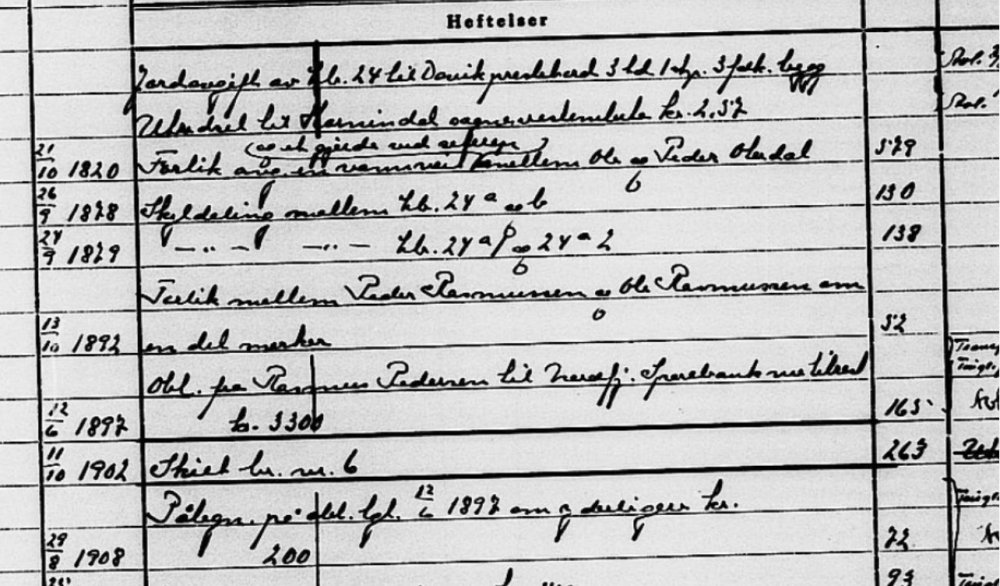 Heftelser
Jordavgift av Lb. 24 til Davik prestebord 3 td 1 skp. 3 fdk. bygg
Utredsel til Hornindal sogneprestembede kr. 2,57
(og et gjerde ved
21/10 1820 Forlik ang. en mellem Ole og Peder Oterdal 579
26/9 1878 Skyldeling mellem Lb. 24 a og b 130
27/9 1879 " — " — " — " — Lb. 24 a 1 og 24 a 2 138
Forlik mellem Peder Rasmussen og Ole Rasmussen om
13/10 1892 en del merker 52
Obl. fra Rasmus Pedersen til Nordfj. Sparebank
12/6 1897 kr. 3300 165
11/10 1902 Skielt br. nr. 6 263
Påtegn. på obl. tgl. 12/6 1897 om yderligere kr.
29/8 1908 200 72
93